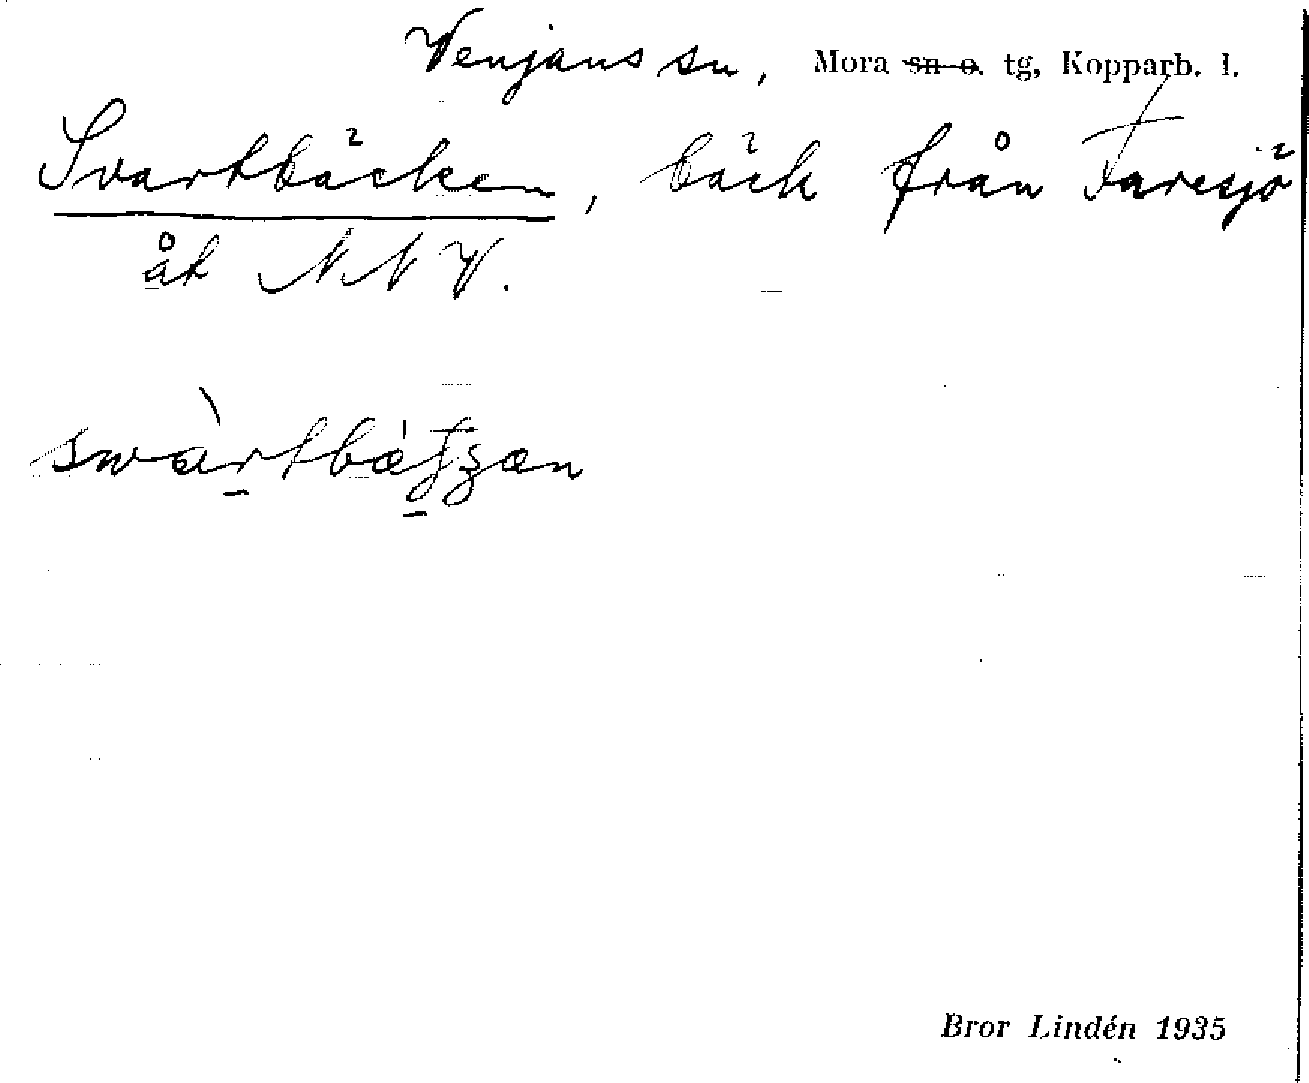 Venjans sn, Mora sn o. tg, Kopparb. l.
Svartbäcken, bäck från Faresjö
åt NNV.
swàrtbátʒæn
Bror Lindén 1935